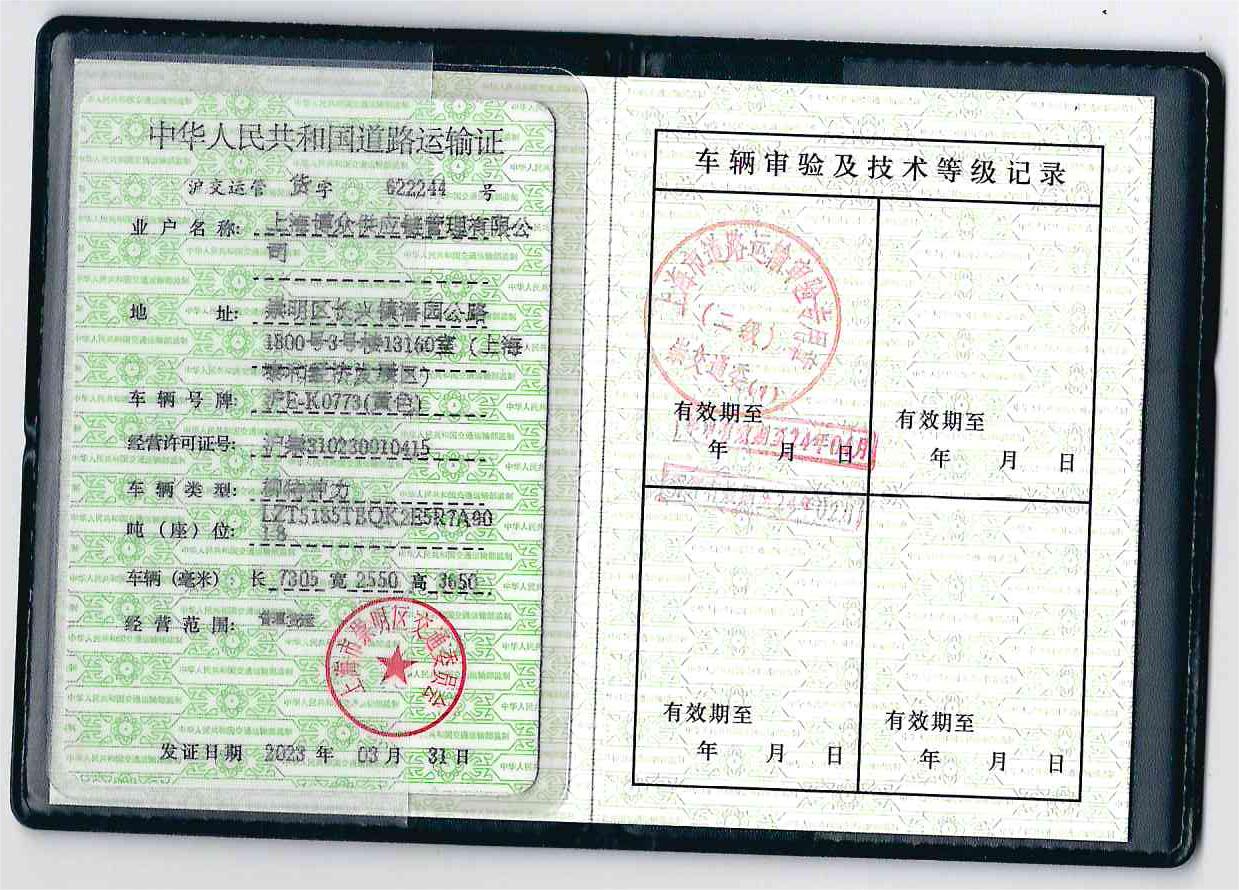 中华人民共和国道路运输证
沪交运管 货字 022244 号
业户名称: 上海 众供应链管理有限公
司
地 址: 崇明区长兴镇潘园公路
1800号3号楼13160室（上海
泰和经济发展区）
车辆号牌: 沪E-K0773(黄色)
经营许可证号: 310230010415
车辆类型:
吨（座）位:
车辆（毫米）: 长 7305 宽 2550 高 3650
经营范围:
上海市崇明区交通委员会
发证日期 2023 年 03 月 31 日
车辆审验及技术等级记录
上海市道路运输审验专用章
（二级）
崇交通委(1)
有效期至
年 月 日
至24年04月
有效期至
年 月 日
24年02月
有效期至
年 月 日
有效期至
年 月 日